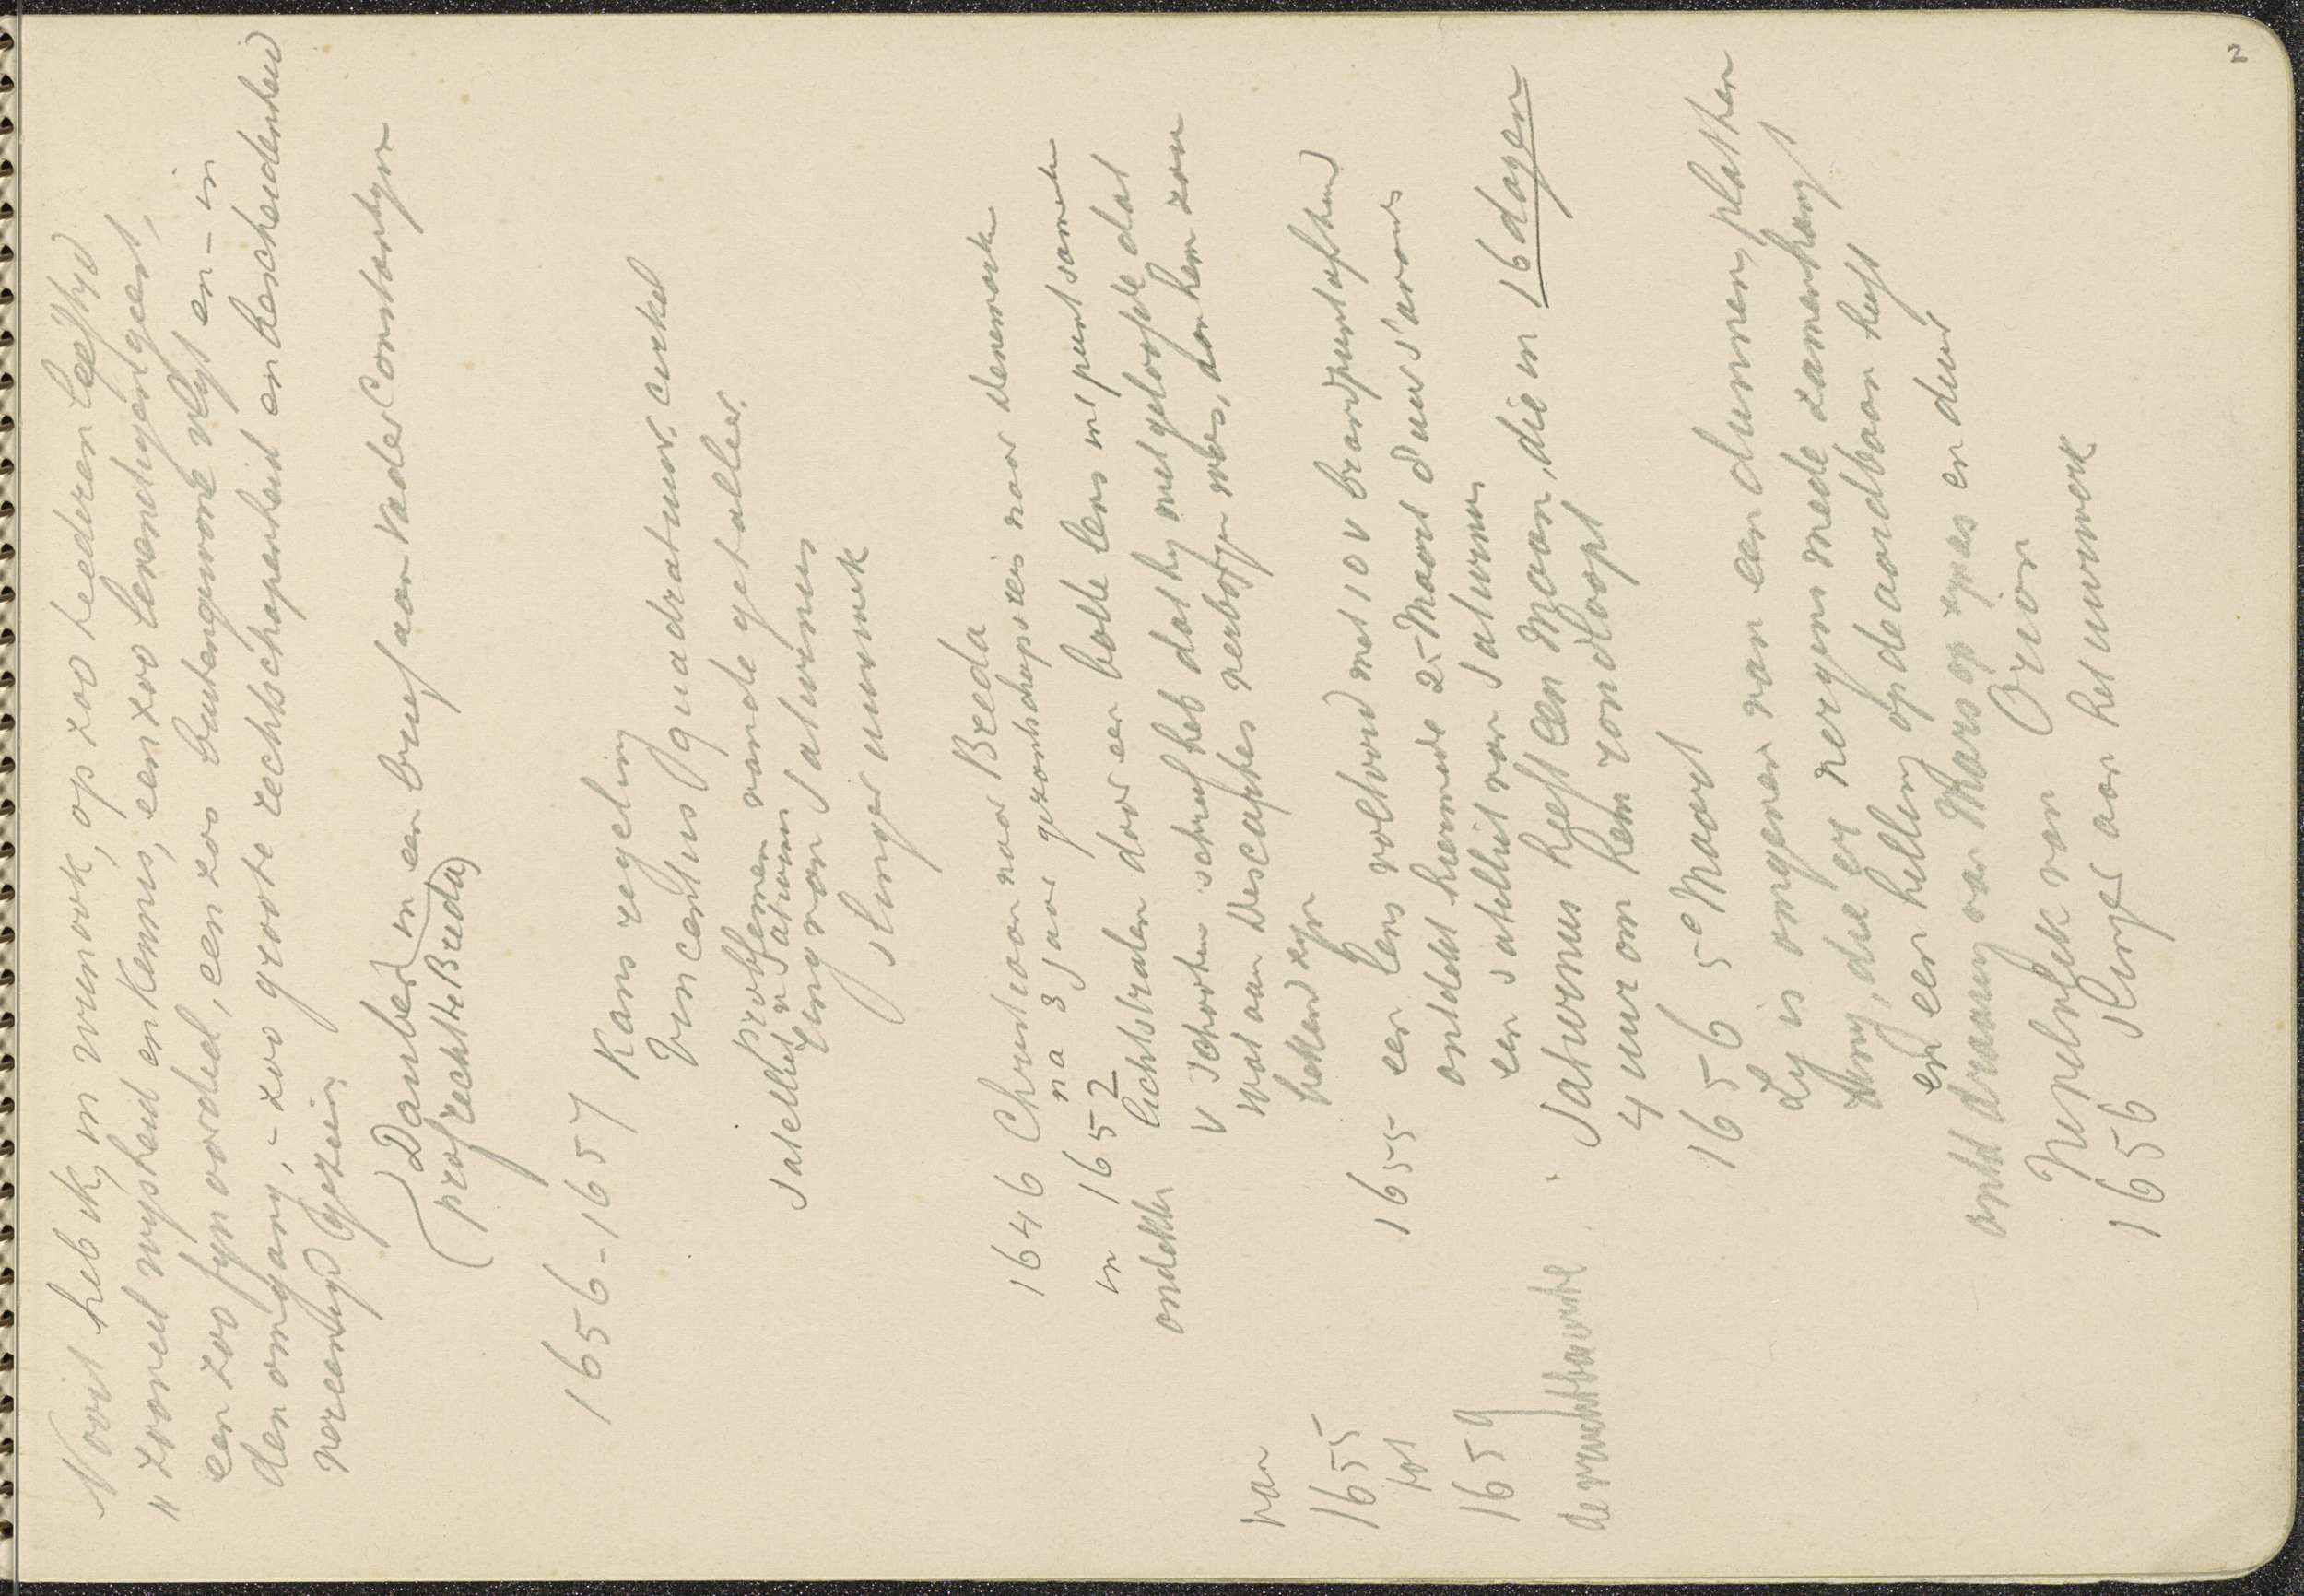 Nooit heb ik, in wien ook, op zoo teederen leeftijd
"zooveel wijsheid en kennis, een zoo levendigen geest,
een zoo fijn oordeel, een zoo buitengewone vlijt en - in
den omgang, - zoo groote rechtschapenheid en bescheidenheid
vereenigd gezien
Dauber in een brief aan Vader Constantyn
(prof rechten Breda)
1656-1657 Kansregeling
Vincentius quadratuur. cirkel
Problemen ronde getallen.
Satelliet v Saturnus
Ring van Saturnus
Slinger uurwerk
1646 Christiaan naar Breda
na 3 jaar gezantschapsreis naar Denemarken
in 1652
ontdekken lichtstralen door een bolle lens in 1 punt samen
v Schooten schreef heb dat hy niet geloofde dat
wat aan Descartes verborgen was, aan hem zou
bekend zyn
van
1655
tot
1659
de vruchtbaarste
1655 een lens voltooid met 10 v brandpuntafstand
ontdekt hiermede 25 Maart 8 uur s'avonds
een satelliet van Saturnus
Saturnus heeft een Maan, die in 16 dagen
4 uur om hem rondloopt
1656 5e Maart
Zy is omgeven van een dunnen, platten
Ring, die er nergens mede zamenhangt
en een helling op de aardbaan heeft
ontd draaiing van Mars op zyn as en duur
Nevelvlek van Orion
1656 Slinger aan het uurwerk
2